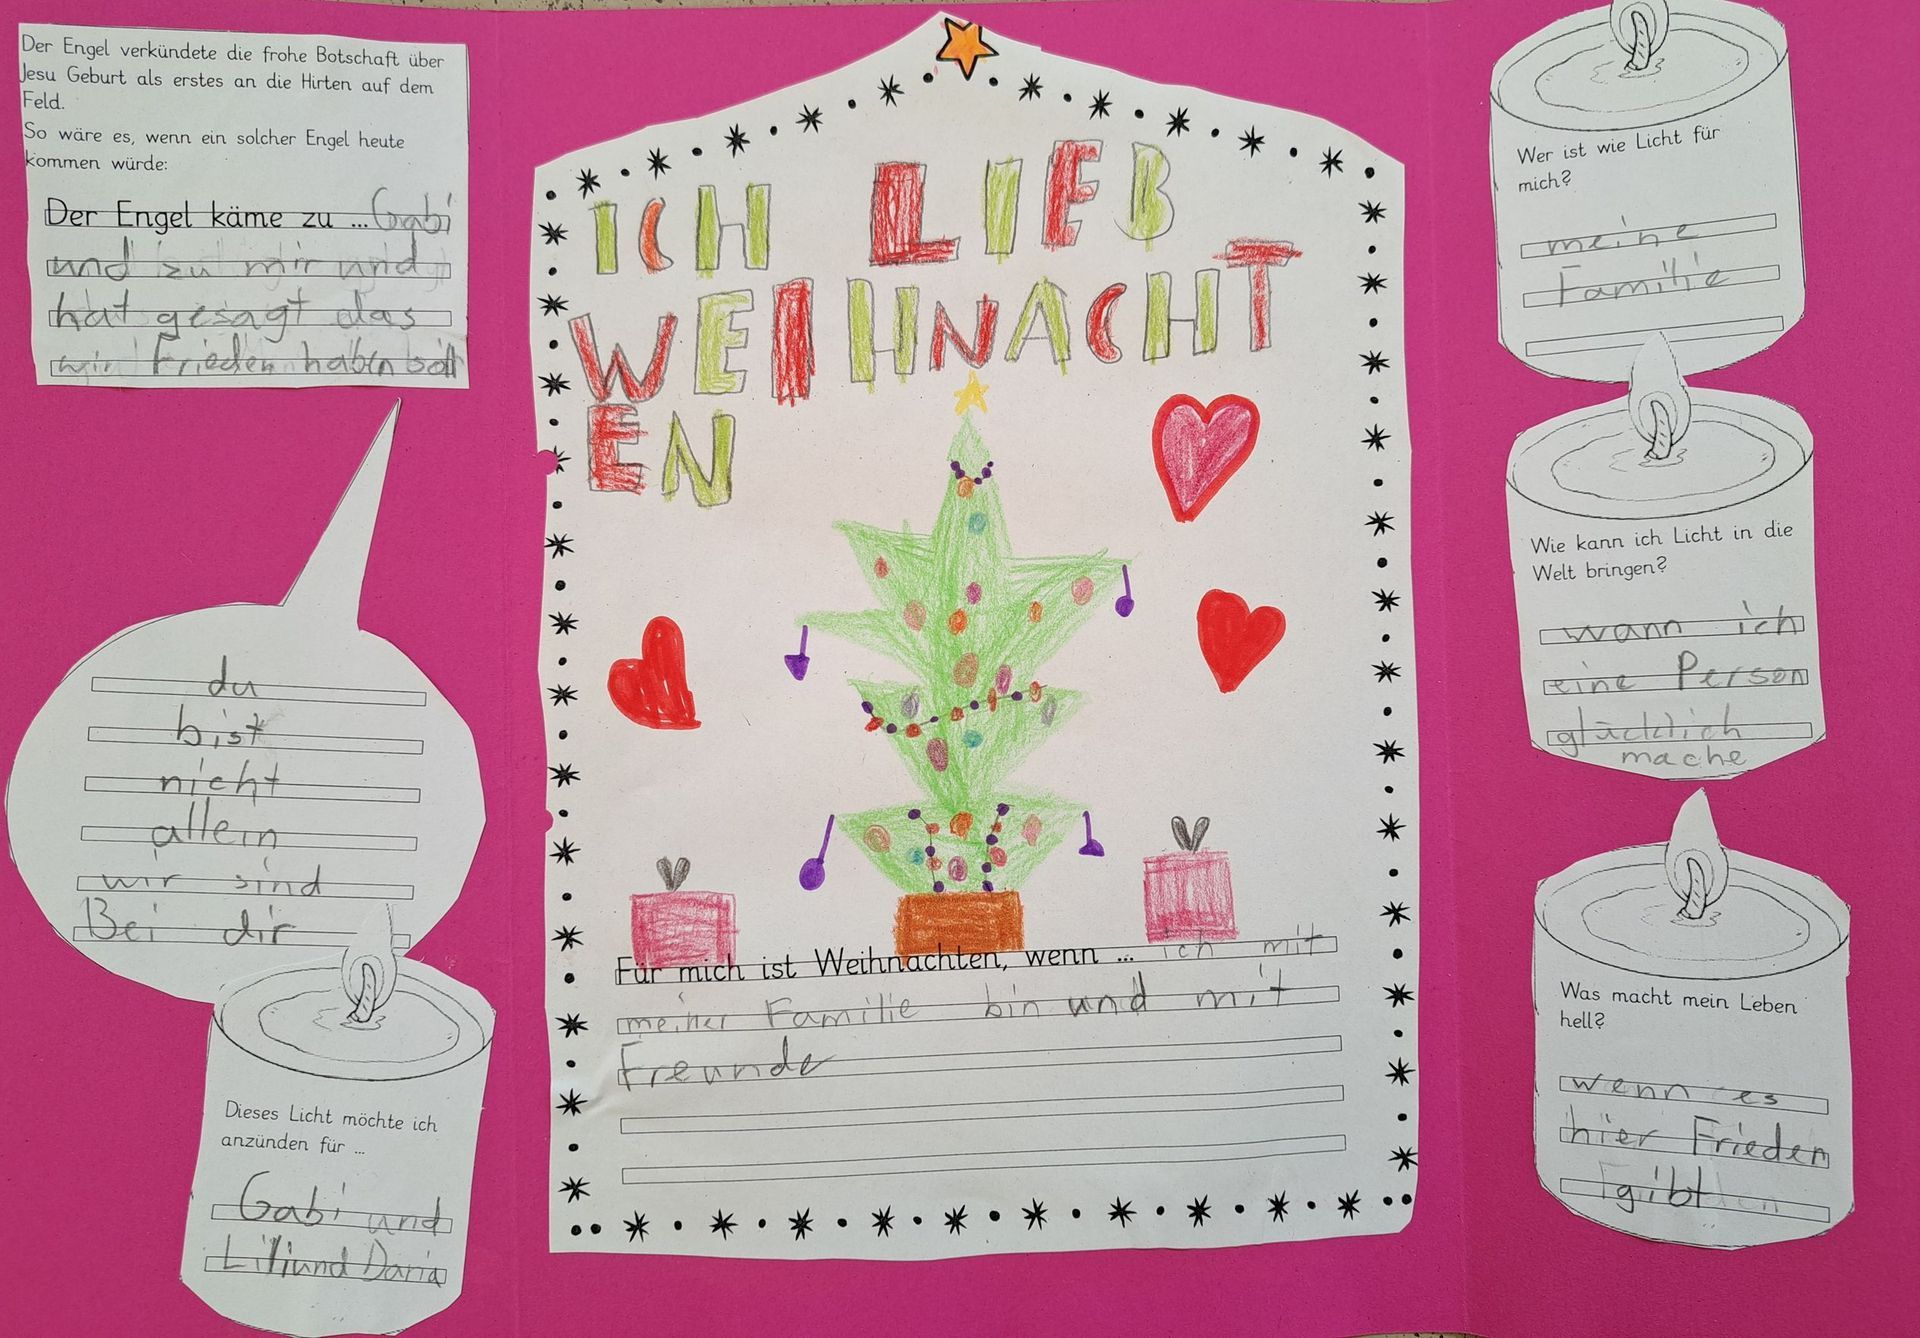 Der Engel verkündete die frohe Botschaft über
Jesu Geburt als erstes an die Hirten auf dem
Feld.
So wäre es, wenn ein solcher Engel heute
kommen würde:
Der Engel käme zu ... Gabi
und zu mir und
hat gesagt das
wir Frieden haben soll
du
bist
nicht
allein
wir sind
Bei dir
Dieses Licht möchte ich
anzünden für ...
Gabi und
Lili und Daria
ICH LIEB
WEIHNACHT
EN
Für mich ist Weihnachten, wenn ... ich mit
meiner Familie bin und mit
Freunde
Wer ist wie Licht für
mich?
meine
Familie
Wie kann ich Licht in die
Welt bringen?
wann ich
eine Person
glücklich
mache
Was macht mein Leben
hell?
wenn es
hier Frieden
gibt